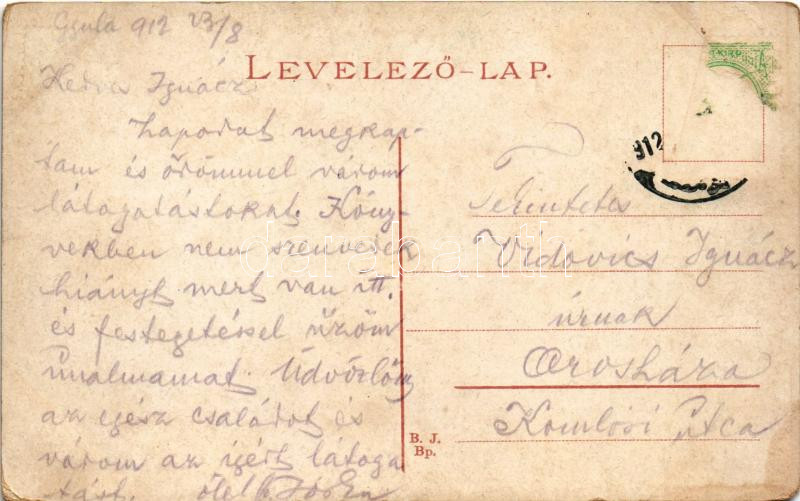 Gyula 912 VII/8
LEVELEZŐ-LAP.
Kedves Ignácz
Lapodat megkap-
tam és örömmel várom
látogatástokat. Köny-
vekben nem szenvedek
hiányt mert van itt.
és festegetéssel űzöm
unalmamat. Üdvözlöm
az egész családot és
várom az igért látoga
tást. ölel
912
Tekintetes
Vidovics Ignácz
úrnak
Orosháza
Komlósi Utca
B. J.
Bp.
darabanth